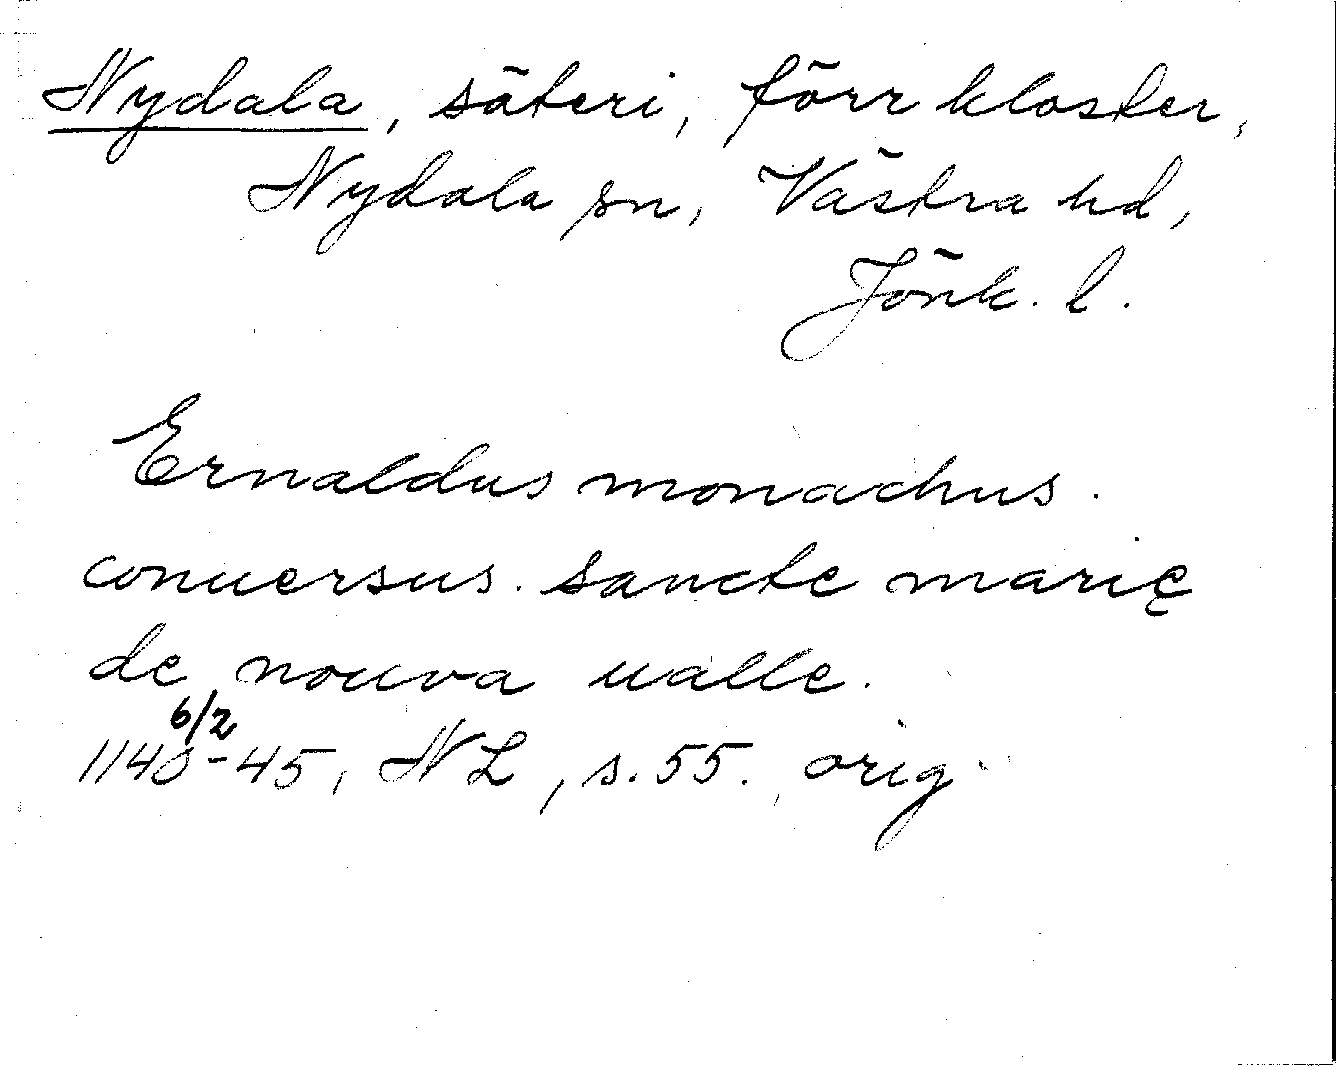 Nydala, säteri, förr kloster,
Nydala sn, Västra hd,
Jönk. l.
Ernaldus monachus.
conuersus. sancte marię
de nouva ualle.
6/2
1140-45, NL, s. 55. orig.